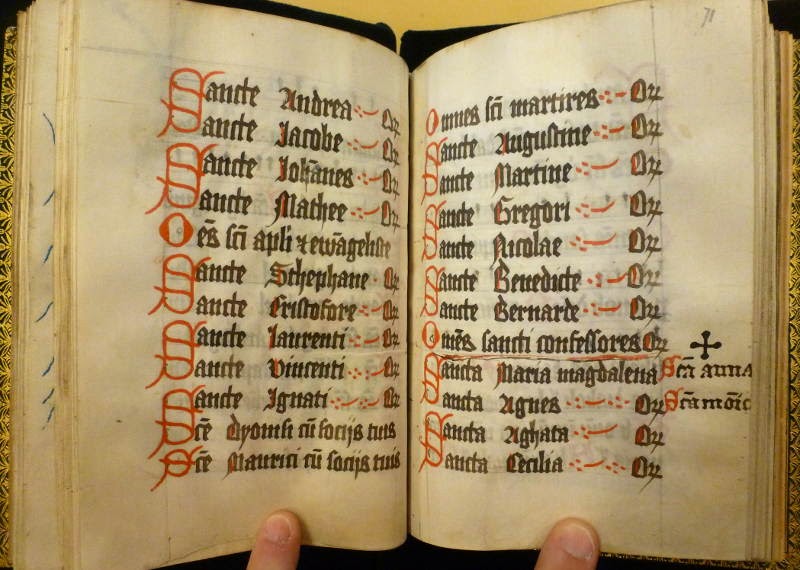 Sancte Andrea Orr
Sancte Jacobe Orr
Sancte Johanes Orr
Sancte Mathee Orr
Oēs scī apli & ewāgeliste
Sancte Sthephane Orr
Sancte Cristofore Orr
Sancte Laurenti Orr
Sancte Vincenti Orr
Sancte Ignati Orr
Scē Dyonisi cū socijs tuis
Scē Maurici cū socijs tuis
71
Omnes scī martires Orr
Sancte Augustine Orr
Sancte Martine Orr
Sancte Gregori Orr
Sancte Nicolae Orr
Sancte Benedicte Orr
Sancte Bernarde Orr
Omēs sancti confessores Orr
Sancta Maria magdalena Scā anna
Sancta Agnes Orr Scā mōic
Sancta Aghata Orr
Sancta Cecilia Orr